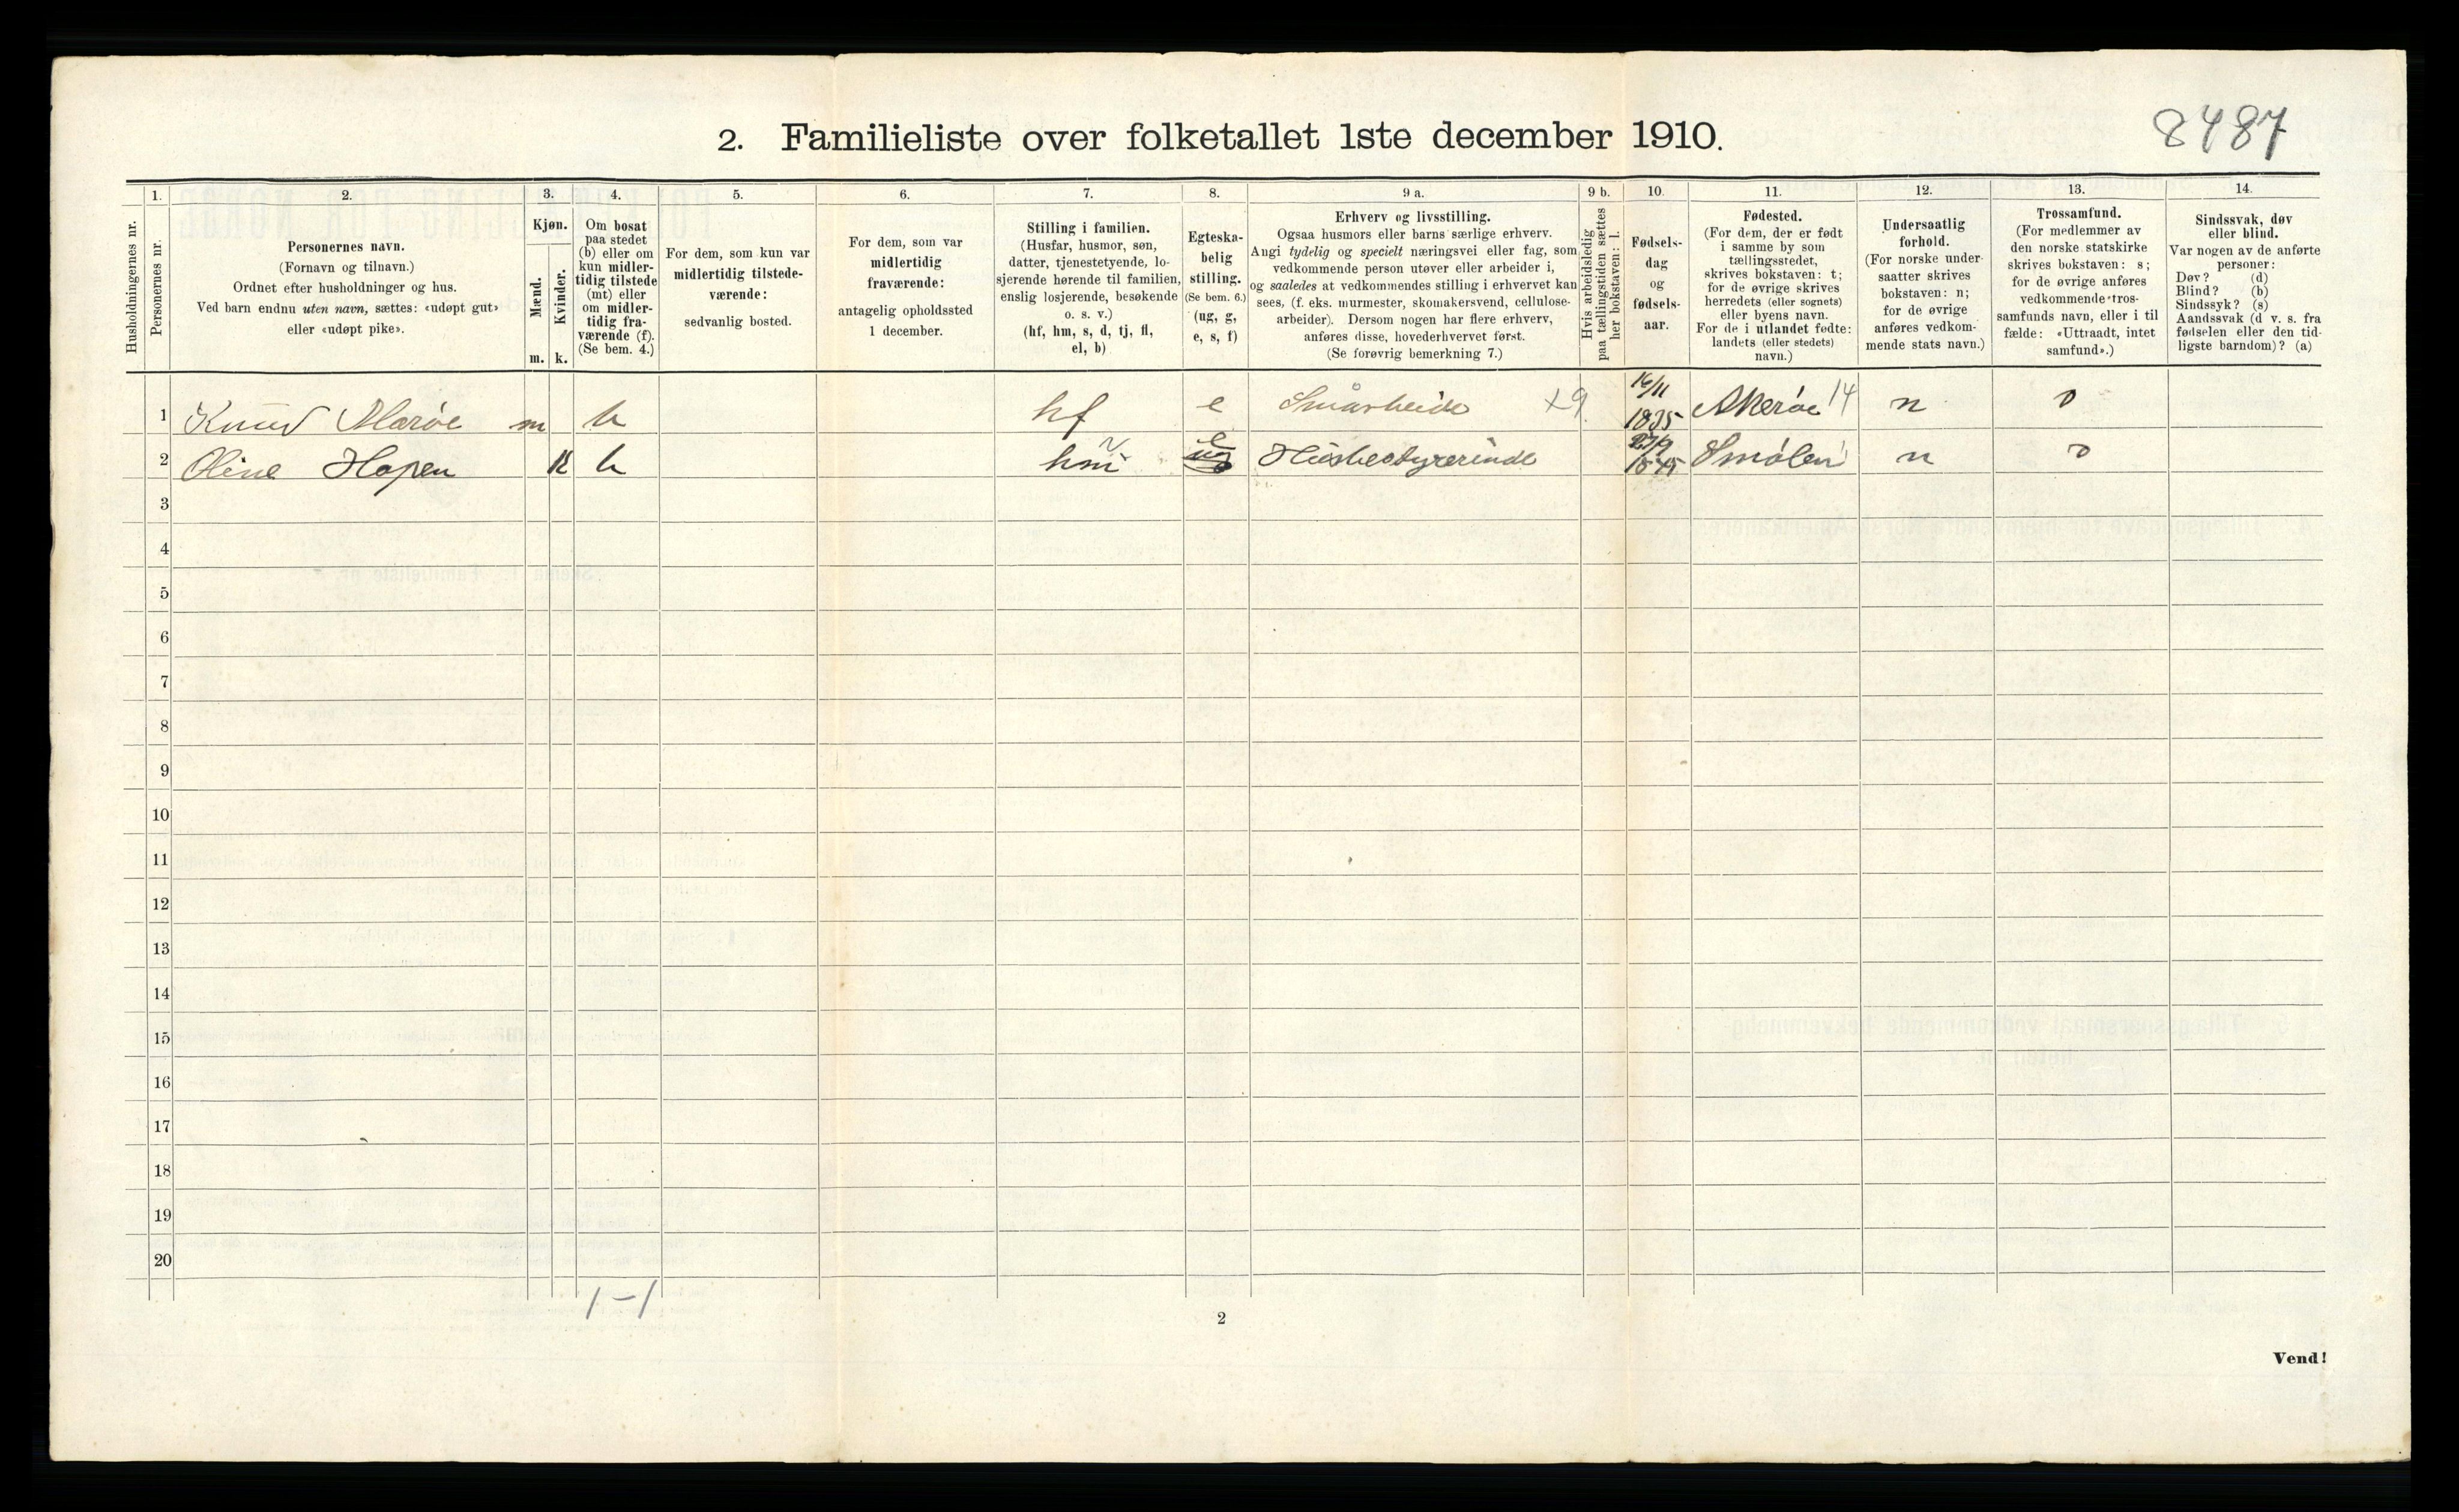 8487
2. Familieliste over folketallet 1ste december 1910.
1. 2. 3. 4. 5. 6. 7. 8. 9 a. 9 b. 10. 11. 12. 13. 14.
Husholdningernes nr.
Personernes nr.
Personernes navn.
(Fornavn og tilnavn.)
Ordnet efter husholdninger og hus.
Ved barn endnu uten navn, sættes: «udøpt gut»
eller «udøpt pike».
Kjøn.
Mænd.
m.
Kvinder.
k.
Om bosat
paa stedet
(b) eller om
kun midler-
tidig tilstede
(mt) eller
om midler-
tidig fra-
værende (f).
(Se bem. 4.)
For dem, som kun var
midlertidig tilstede-
værende:
sedvanlig bosted.
For dem, som var
midlertidig
fraværende:
antagelig opholdssted
1 december.
Stilling i familien.
(Husfar, husmor, søn,
datter, tjenestetyende, lo-
sjerende hørende til familien,
enslig losjerende, besøkende
o. s. v.)
(hf, hm, s, d, tj, fl,
el, b)
Egteska-
belig
stilling.
(Se bem. 6.)
(ug, g,
e, s, f)
Erhverv og livsstilling.
Ogsaa husmors eller barns særlige erhverv.
Angi tydelig og specielt næringsvei eller fag, som
vedkommende person utøver eller arbeider i,
og saaledes at vedkommendes stilling i erhvervet kan
sees, (f. eks. murmester, skomakersvend, cellulose-
arbeider). Dersom nogen har flere erhverv,
anføres disse, hovederhvervet først.
(Se forøvrig bemerkning 7.)
Hvis arbeidsledig
paa tællingstiden sættes
her bokstaven: l.
Fødsels-
dag
og
fødsels-
aar.
Fødested.
(For dem, der er født
i samme by som
tællingsstedet,
skrives bokstaven: t;
for de øvrige skrives
herredets (eller sognets)
eller byens navn.
For de i utlandet fødte:
landets (eller stedets)
navn.)
Undersaatlig
forhold.
(For norske under-
saatter skrives
bokstaven: n;
for de øvrige
anføres vedkom-
mende stats navn.)
Trossamfund.
(For medlemmer av
den norske statskirke
skrives bokstaven: s;
for de øvrige anføres
vedkommende tros-
samfunds navn, eller i til
fælde: «Uttraadt, intet
samfund».)
Sindssvak, døv
eller blind.
Var nogen av de anførte
personer:
Døv? (d)
Blind? (b)
Sindssyk? (s)
Aandssvak (d v. s. fra
fødselen eller den tid-
ligste barndom)? (a)
1 Knud Marøe m b hf e Småarbeide x9 16/11 1835 Akerøe 14 n s
2 Oline Hopen k b hm e Husbestyrerinde 27/9 1845 Smølen n s
3
4
5
6
7
8
9
10
11
12
13
14
15
16
17
18
19
20
1-1
2
Vend!